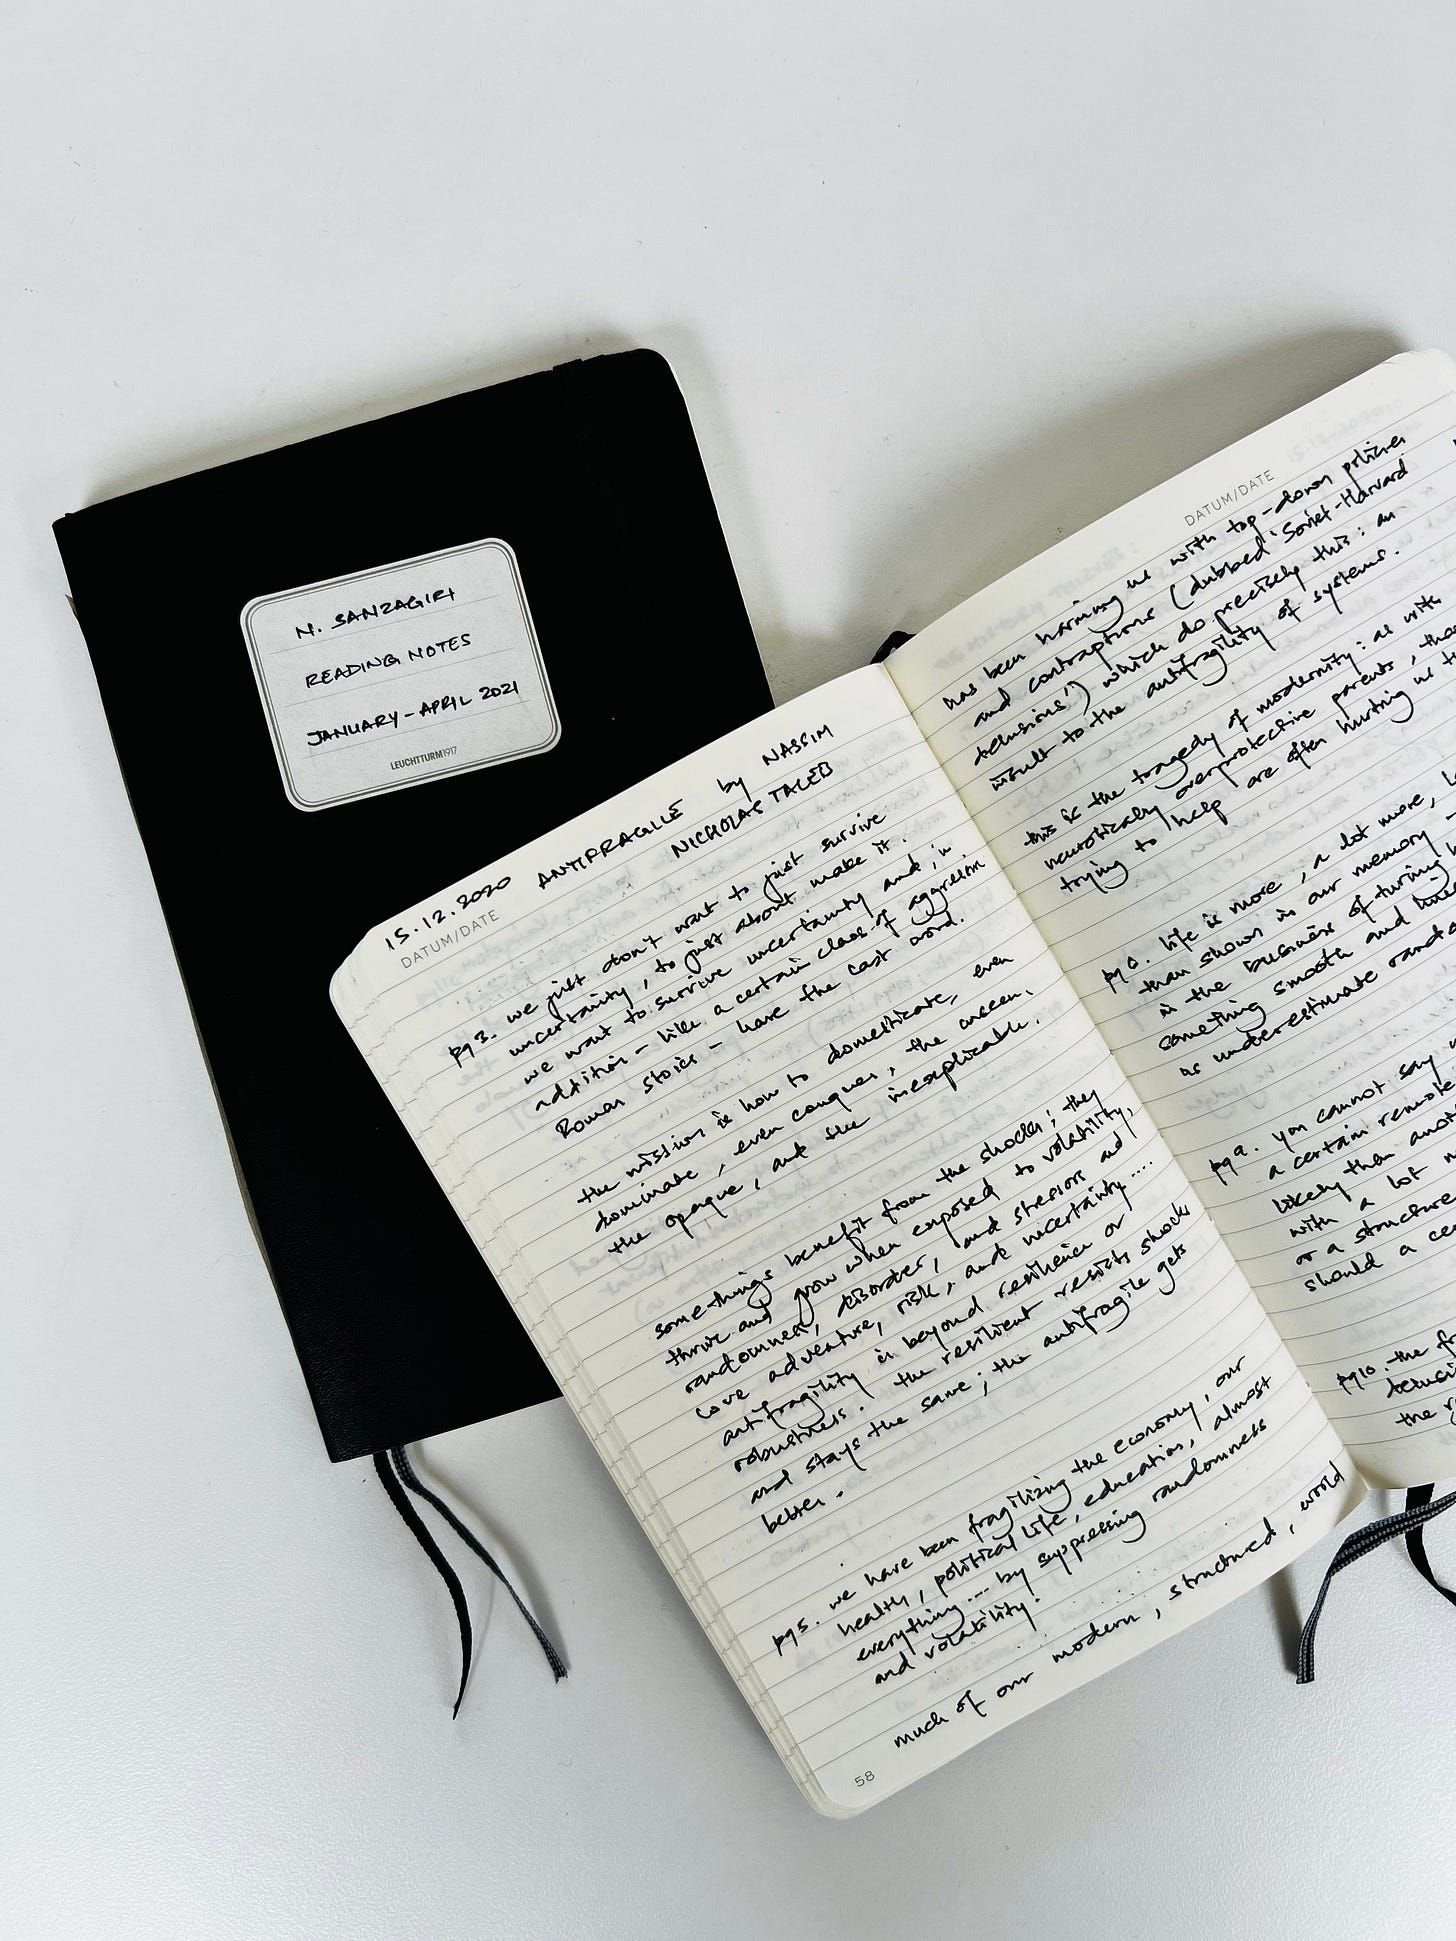 N. SANZAGIRI
READING NOTES
JANUARY - APRIL 2021
LEUCHTTURM1917
15.12.2020 ANTIFRAGILE by NASSIM
NICHOLAS TALEB
DATUM/DATE
pg 3. we just don't want to just survive
uncertainty, to just about make it.
we want to survive uncertainty and, in
addition - like a certain class of aggressive
Roman stoics - have the last word.
the mission is how to domesticate, even
dominate, even conquer, the unseen,
the opaque, and the inexplicable.
some things benefit from the shocks; they
thrive and grow when exposed to volatility,
randomness, disorder, and stressors and
love adventure, risk, and uncertainty....
antifragility is beyond resilience or
robustness. the resilient resists shocks
and stays the same; the antifragile gets
better.
pg 5. we have been fragilizing the economy, our
health, political life, education, almost
everything.... by suppressing randomness
and volatility.
much of our modern, structured, world
58
DATUM/DATE
has been harming us with top-down policies
and contraptions (dubbed 'Soviet-Harvard
delusions') which do precisely this: an
insult to the antifragility of systems.
this is the tragedy of modernity: as with
neurotically overprotective parents,
trying to help are often hurting us
pg 6. life is more, a lot more,
than shows in our memory -
in the business of turning
something smooth and
us underestimate
pg 9. you cannot say
a certain remote
likely than
with a lot
or a structure
should a
pg 10. the
the